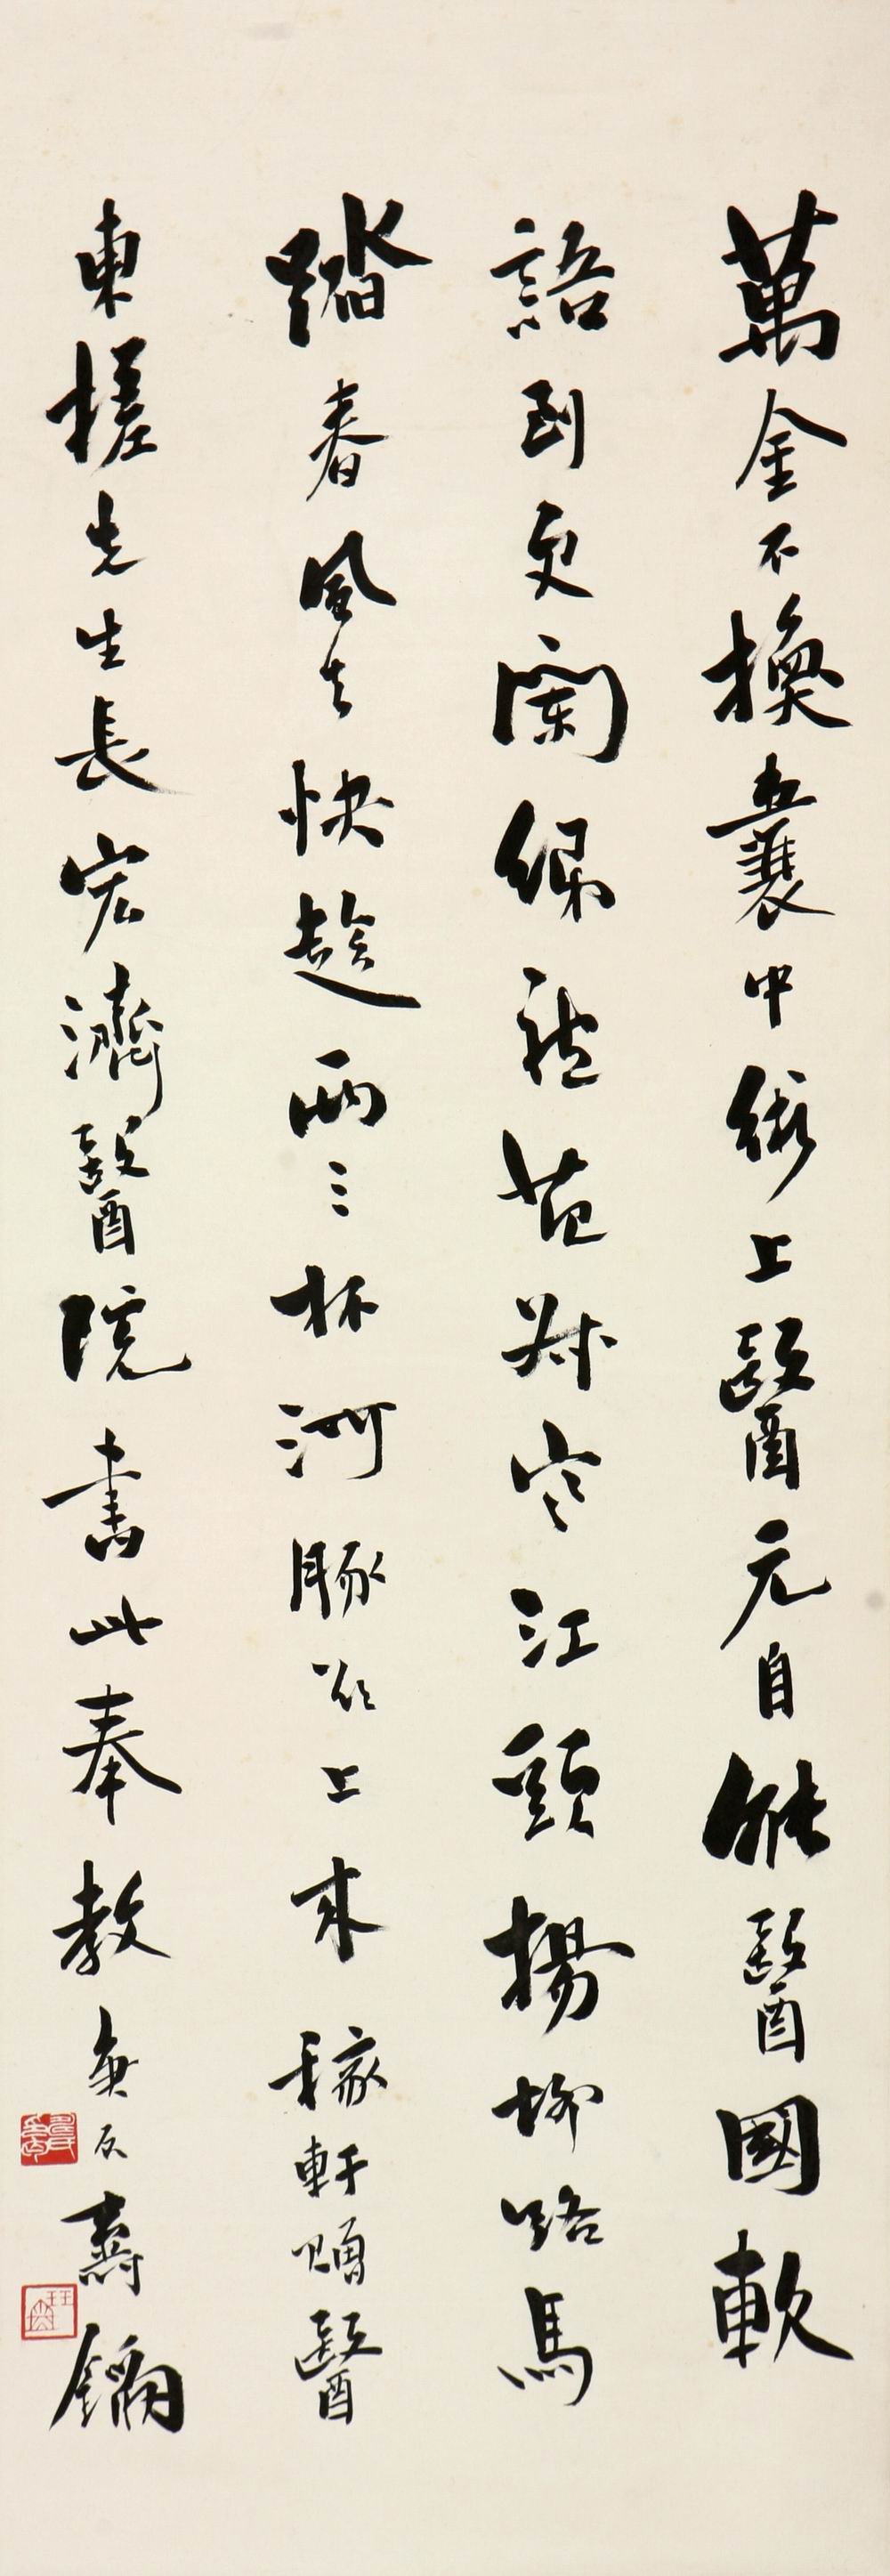 萬金不換囊中術上醫元自能醫國軟
語到更闌綈袍范叔寒江頭揚柳路馬
踏春風去快趁兩三杯河豚欲上來 稼軒贈醫
東槎先生長宏濟醫院書此奉教 庚辰 壽鏞